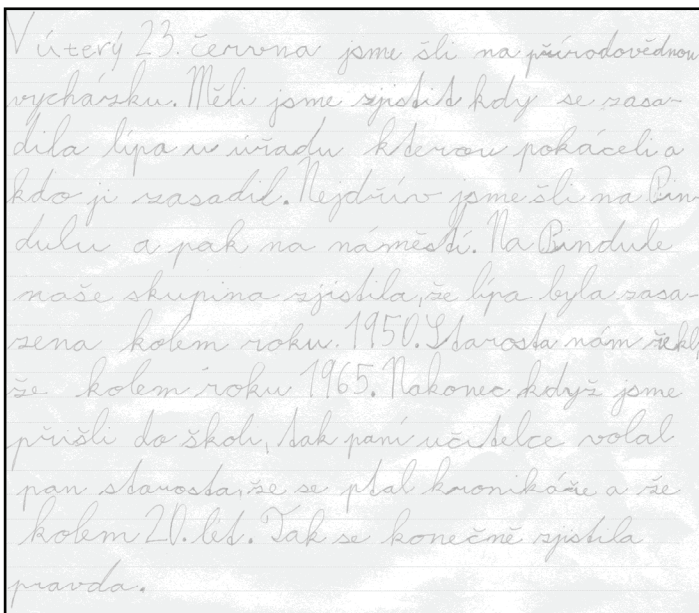 V úterý 23. června jsme šli na přírodovědnou
vycházku. Měli jsme zjistit kdy se zasa-
dila lípa u úřadu kterou pokáceli a
kdo ji zasadil. Nejdřív jsme šli na Bin-
dulu a pak na náměstí. Na Bindule
naše skupina zjistila, že lípa byla zasa-
zena kolem roku 1950. Starosta nám řekl,
že kolem roku 1965. Nakonec když jsme
přišli do školi, tak paní učitelce volal
pan starosta, že se ptal kronikáře a že
kolem 20. let. Tak se konečně zjistila
pravda.